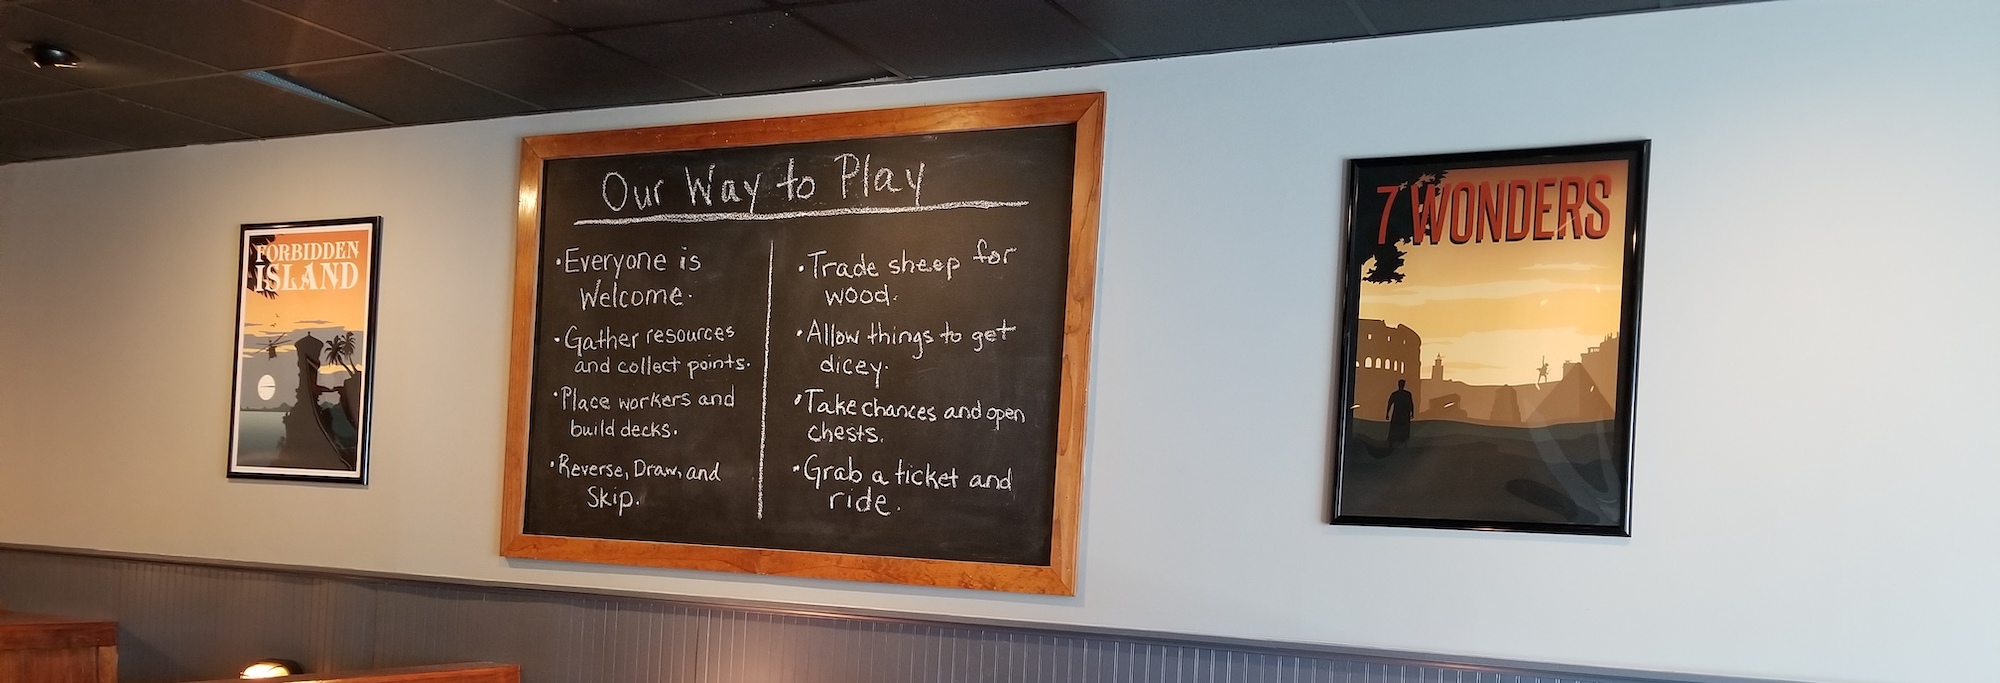 FORBIDDEN
ISLAND
Our Way to Play
•Everyone is
Welcome.
•Gather resources
and collect points.
•Place workers and
build decks.
•Reverse, Draw, and
Skip.
•Trade sheep for
wood.
•Allow things to get
dicey.
•Take chances and open
chests.
•Grab a ticket and
ride.
7 WONDERS